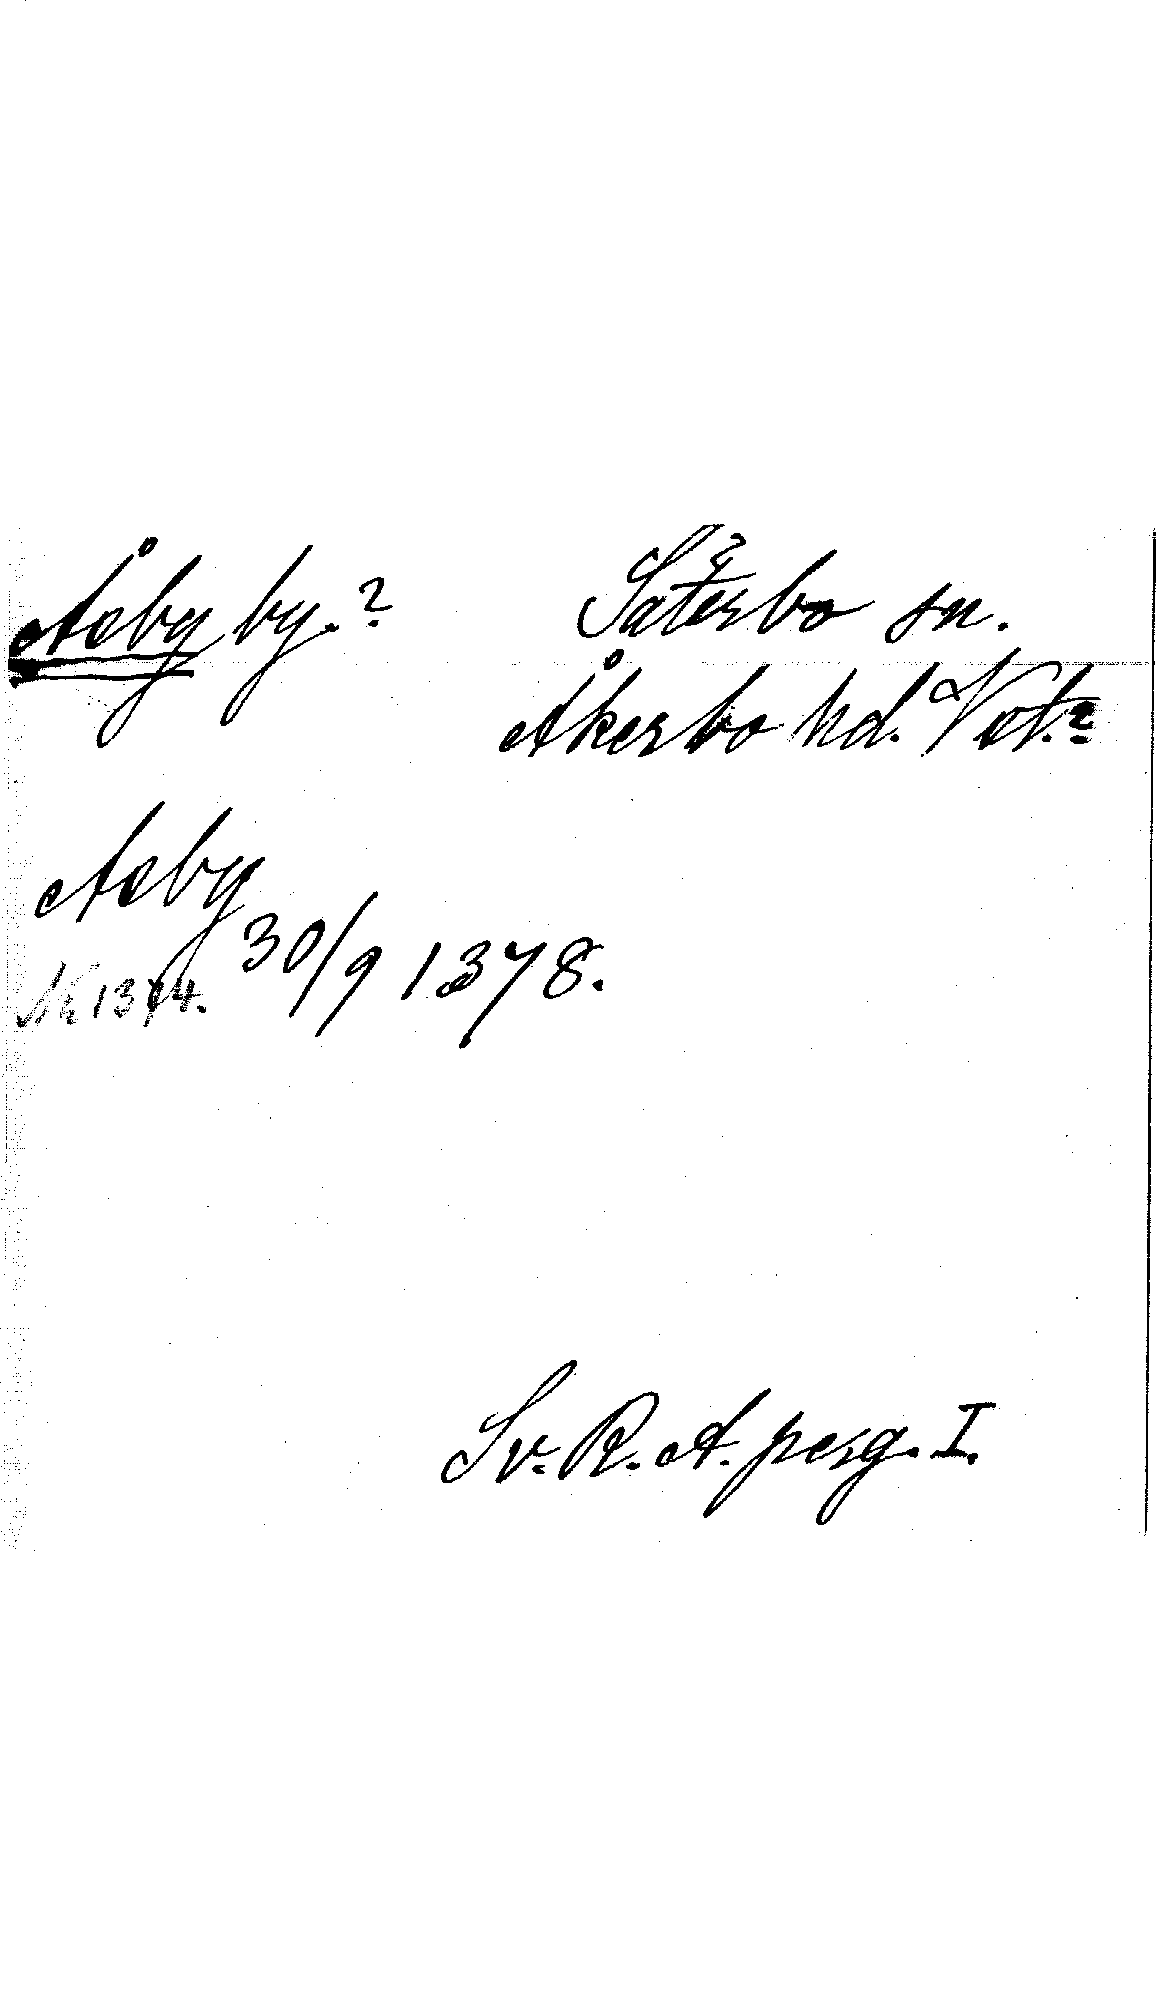 Åsby by.? Säterbo sn.
Åkerbo hd. Vst.?
Asby
30/9 1378.
1374.
Sv. R. A. perg. I.